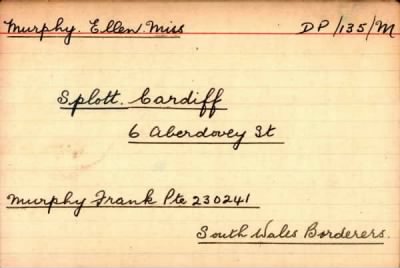 Murphy. Ellen. Miss DP/135/M
Splott. Cardiff
6 Aberdovey St
Murphy Frank Pte 230241
South Wales Borderers.